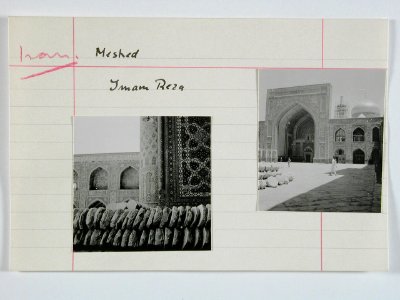 Iran.
Meshed
Imam Reza